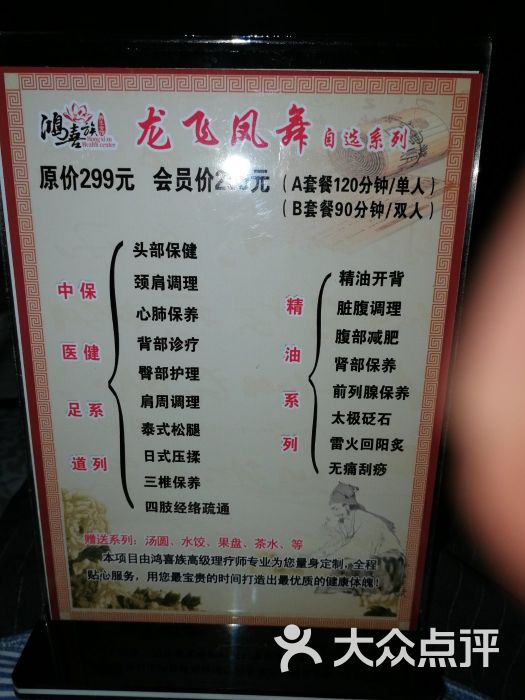 鸿喜族
Hong xi zu
Health center
龙飞凤舞 自选系列
原价299元 会员价2元 (A套餐120分钟/单人)
(B套餐90分钟/双人)
中医足道
保健系列
头部保健
颈肩调理
心肺保养
背部诊疗
臀部护理
肩周调理
泰式松腿
日式压揉
三椎保养
四肢经络疏通
精油系列
精油开背
脏腹调理
腹部减肥
肾部保养
前列腺保养
太极砭石
雷火回阳灸
无痛刮痧
赠送系列：汤圆、水饺、果盘、茶水、等
本项目由鸿喜族高级理疗师专业为您量身定制，全程
贴心服务，用您最宝贵的时间打造出最优质的健康体魄！
大众点评